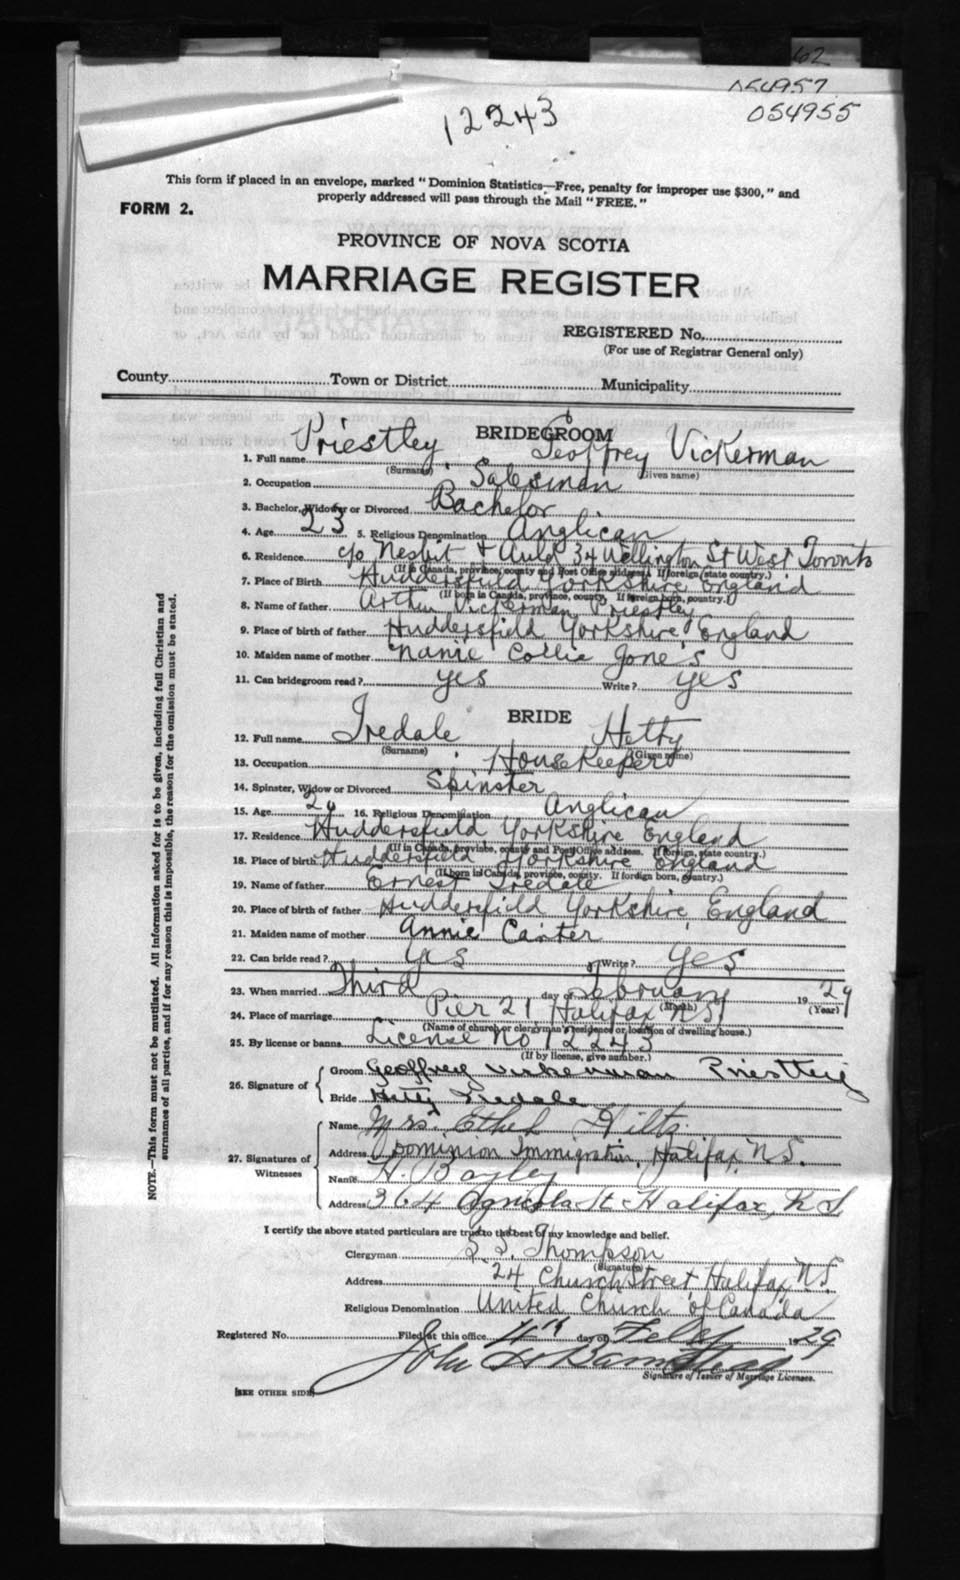 62
054957
054955
12243
This form if placed in an envelope, marked "Dominion Statistics—Free, penalty for improper use $300," and
properly addressed will pass through the Mail "FREE."
FORM 2.
PROVINCE OF NOVA SCOTIA
MARRIAGE REGISTER
REGISTERED No.
(For use of Registrar General only)
County Town or District Municipality
BRIDEGROOM
1. Full name Priestley Geoffrey Vickerman
(Surname) (Given name)
2. Occupation Salesman
3. Bachelor, Widower or Divorced Bachelor
4. Age 23 5. Religious Denomination Anglican
6. Residence c/o Nesbit & Auld 34 Wellington St West Toronto
(If in Canada, province, county and Post Office address. If foreign, state country.)
7. Place of Birth Huddersfield Yorkshire England
(If born in Canada, province, county. If foreign born, country.)
8. Name of father Arthur Vickerman Priestley
9. Place of birth of father Huddersfield Yorkshire England
10. Maiden name of mother Nanie Collie Jones
11. Can bridegroom read? yes Write? yes
BRIDE
12. Full name Iredale Hetty
(Surname) (Given name)
13. Occupation Housekeeper
14. Spinster, Widow or Divorced Spinster
15. Age 26 16. Religious Denomination Anglican
17. Residence Huddersfield Yorkshire England
(If in Canada, province, county and Post Office address. If foreign, state country.)
18. Place of birth Huddersfield Yorkshire England
(If born in Canada, province, county. If foreign born, country.)
19. Name of father Ernest Iredale
20. Place of birth of father Huddersfield Yorkshire England
21. Maiden name of mother Annie Carter
22. Can bride read? yes Write? yes
23. When married Third day of February 1929
(Month) (Year)
24. Place of marriage Pier 21 Halifax NS
(Name of church or clergyman's residence or location of dwelling house.)
25. By license or banns License No 12243
(If by license, give number.)
26. Signature of Groom Geoffrey Vickerman Priestley
Bride Hetty Iredale
27. Signatures of Witnesses Name Mrs Ethel Hilts
Address Dominion Immigration, Halifax, N.S.
Name H. Bayley
Address 364 Agricola St Halifax, N S
I certify the above stated particulars are true to the best of my knowledge and belief.
Clergyman Thompson
(Signature)
Address 24 Church Street Halifax N.S.
Religious Denomination United Church of Canada
Registered No. Filed at this office 4th day of Feby 1929
John H Barnstead
Signature of Issuer of Marriage Licenses.
[SEE OTHER SIDE]
NOTE.—This form must not be mutilated. All information asked for is to be given, including full Christian and
surnames of all parties, and if for any reason this is impossible, the reason for the omission must be stated.